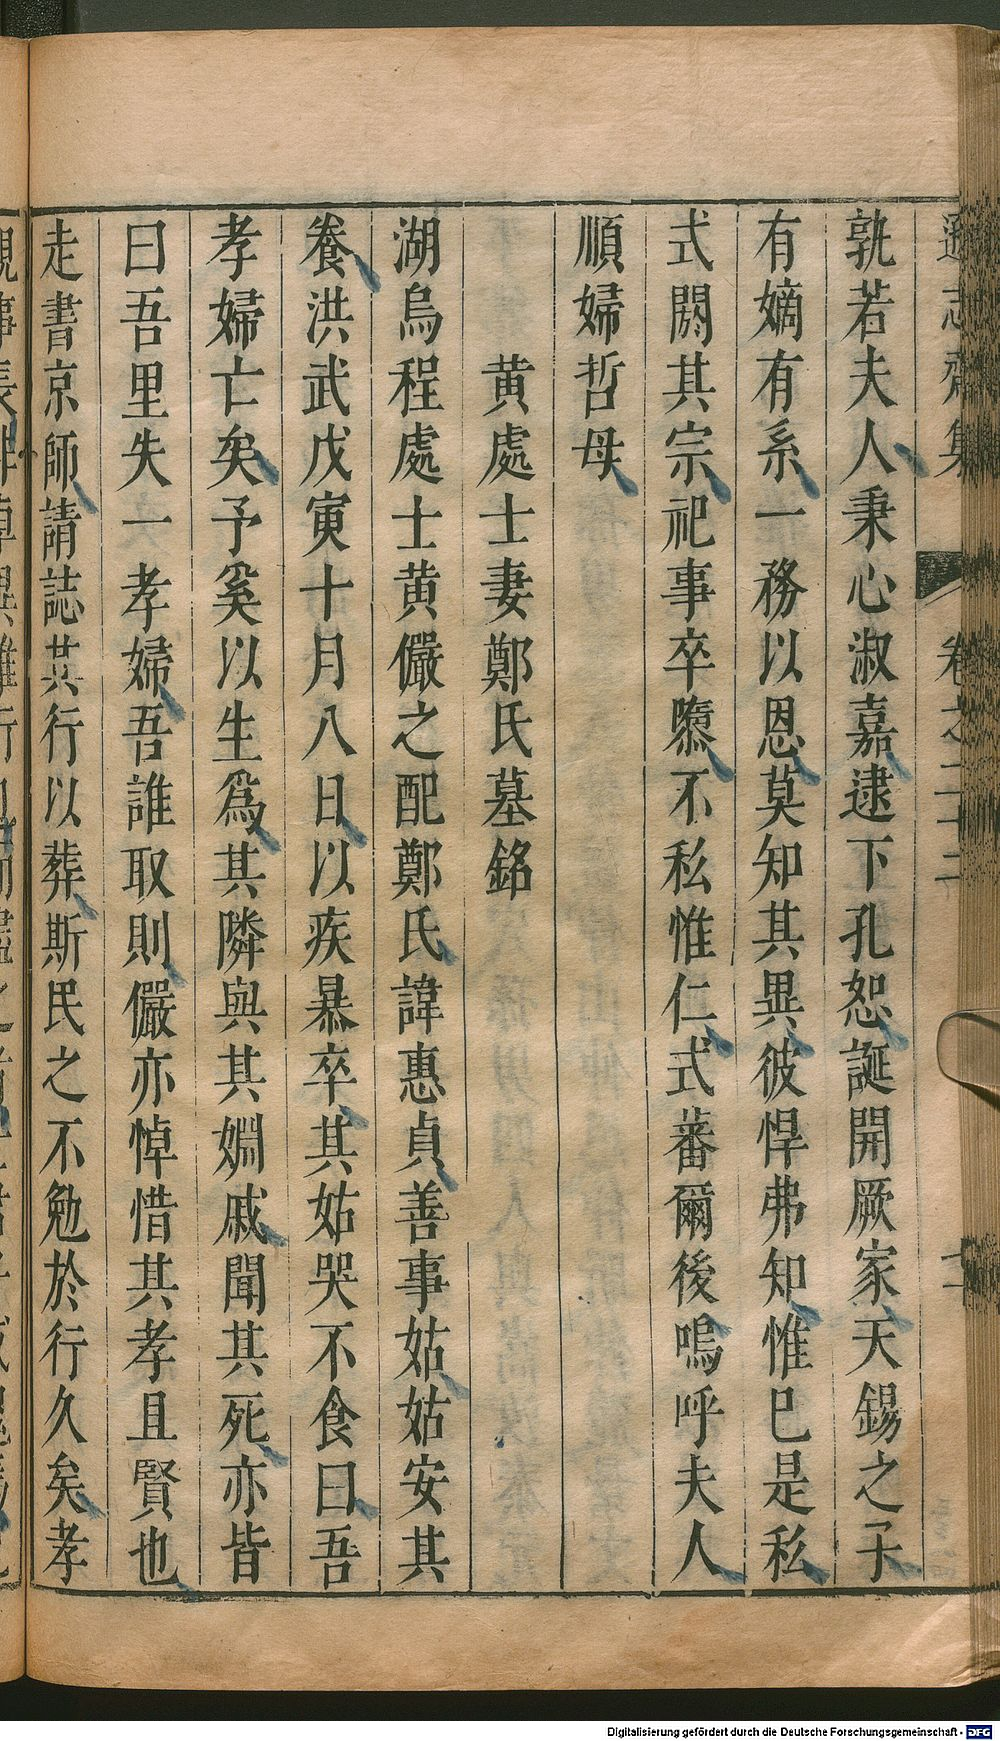 遜志齋集 卷之二十二
孰若夫人秉心淑嘉逮下孔恕誕開厥家天錫之子
有嫡有系一務以恩莫知其異彼悍弗知惟已是私
式閼其宗祀事卒隳不私惟仁式蕃爾後嗚呼夫人
順婦哲母
黄處士妻鄭氏墓銘
湖烏程處士黄儼之配鄭氏諱惠貞善事姑姑安其
養洪武戊寅十月八日以疾暴卒其姑哭不食曰吾
孝婦亡矣予奚以生爲其隣與其婣戚聞其死亦皆
曰吾里失一孝婦吾誰取則儼亦悼惜其孝且賢也
走書京師請誌其行以葬斯民之不勉於行久矣孝
Digitalisierung gefördert durch die Deutsche Forschungsgemeinschaft - DFG